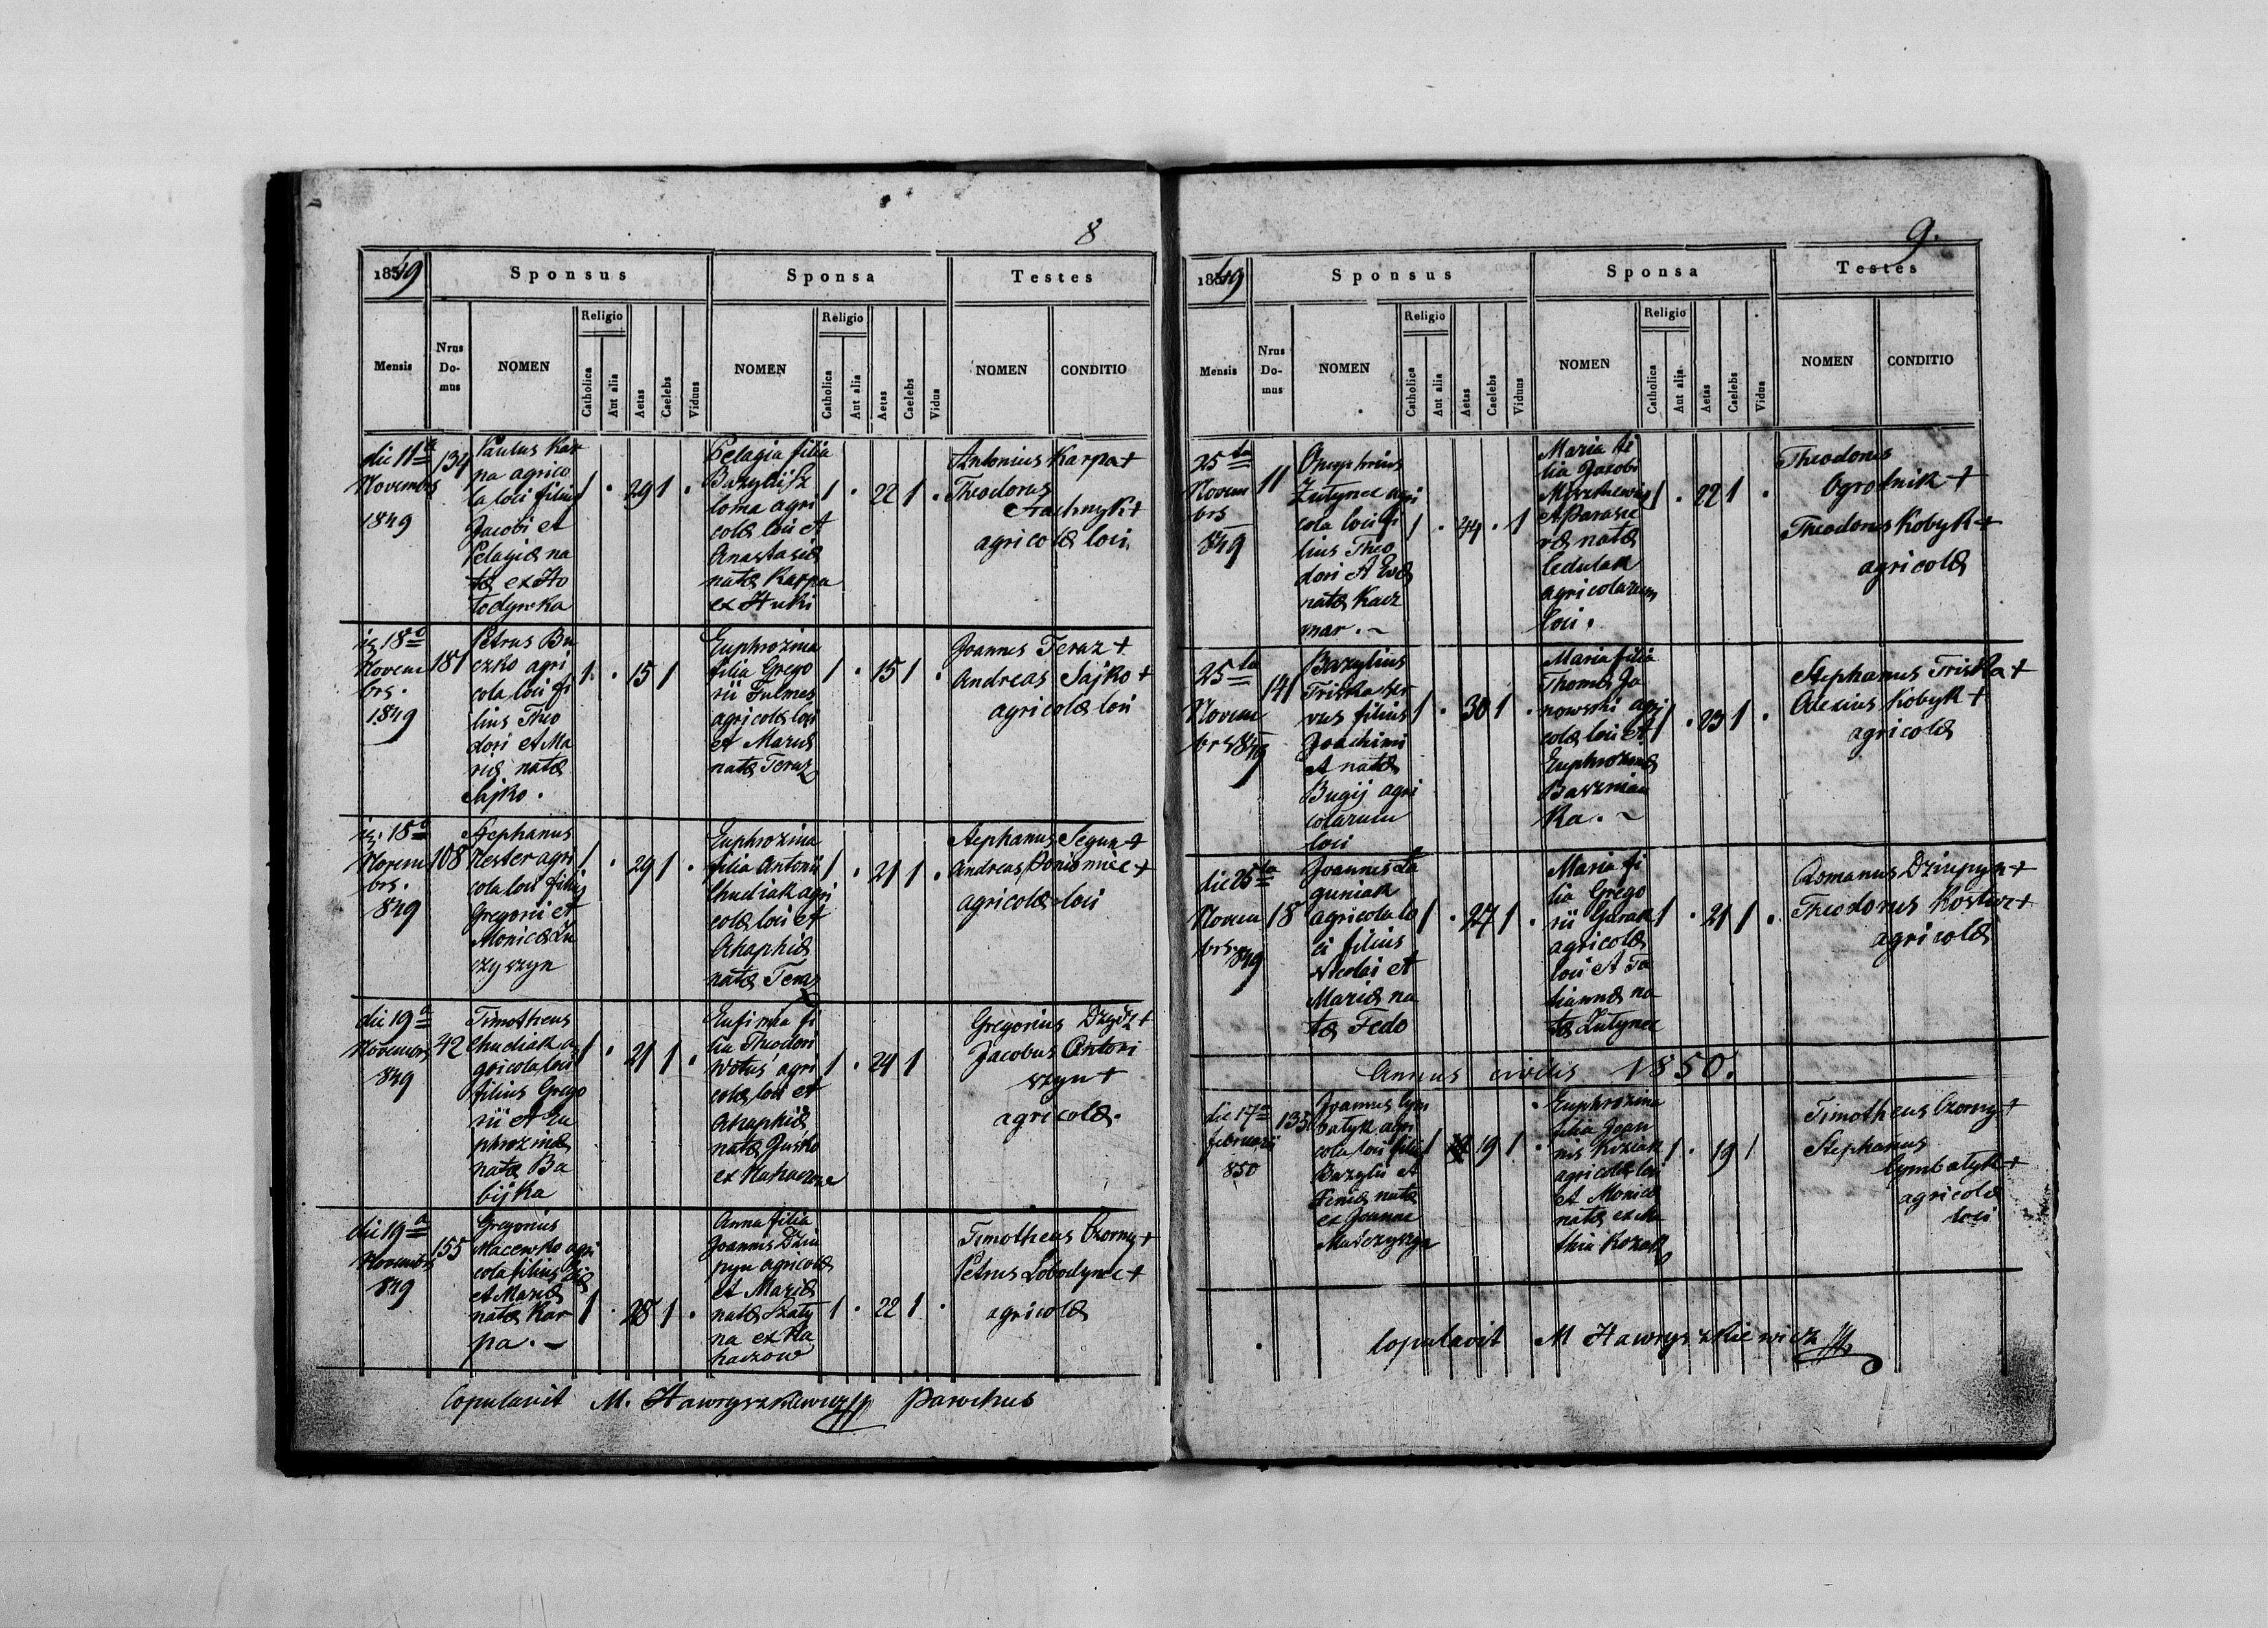 8
1849
Sponsus
Sponsa
Testes
Mensis
Nrus Do-mus
NOMEN
Religio
Catholica
Aut alia
Aetas
Caelebs
Viduus
NOMEN
Religio
Catholica
Aut alia
Aetas
Caelebs
Vidua
NOMEN
CONDITIO
die 11a
Novembris
1849
134
Paulus Kar
pa agrico
la loci filius
Jacobi et
Pelagiæ na
tæ ex Ho
lodywka
1 . 29 1 .
Pelagia filia
Bazylii Sz
loma agri
colæ loci et
Anastasiæ
natæ Karpa
ex Huki
1 . 22 1 .
Antonius Karpa +
Theodorus
agricolæ loci
18a
Novem
bris.
1849
181
Petrus Bu
czko agri
cola loci fi
lius Theo
dori et Ma
riæ natæ
Sajko.
1 . 15 1
Euphrozina
filia Grego
rii Fulmes
agricolæ loci
et Mariæ
natæ Teraz
1 . 15 1 .
Joannes Teraz +
Andreas Sajko +
agricolæ loci
18a
Novem
bris.
849
108
Stephanus
Nester agri
cola loci filius
Gregorii et
Monicæ Lu
czyszyn
1 . 29 1 .
Euphrozina
filia Antonii
Chudiak agri
colæ loci et
Ahaphiæ
natæ Teraz
1 . 21 1 .
Stephanus Segun +
Andreas +
agricolæ loci
die 19a
Novembris
849
42
Timotheus
Chudiak a
gricola loci
filius Grego
rii et Eu
phrozinæ
natæ Ba
bijka
1 . 21 1 .
Eufimia fi
lia Theodori
Wotus agri
colæ loci et
Ahaphiæ
natæ Jusko
ex
1 . 24 1
Gregorius +
Jacobus Antoni
szyn +
agricolæ.
die 19a
Novembris
849
155
Gregorius
Macewko agri
cola filius
et Mariæ
natæ Kar
pa. -
1 . 28 1 .
Anna filia
Joannis Dziu
pyn agricolæ
et Mariæ
natæ Szaty
na ex Ka
haczow
1 . 22 1 .
Timotheus Czorny +
Petrus Lobodynec +
agricolæ
Copulavit M. Hawryszkiewicz Parochus
9.
1849
Sponsus
Sponsa
Testes
Mensis
Nrus Do-mus
NOMEN
Religio
Catholica
Aut alia
Aetas
Caelebs
Viduus
NOMEN
Religio
Catholica
Aut alia
Aetas
Caelebs
Vidua
NOMEN
CONDITIO
25ta
Novem
bris
849
11
Onuphrius
Zutynec agri
cola loci fi
lius Theo
dori et Evæ
natæ Kacz
mar. -
1 . 34 . 1
Maria fi
lia Jacobi
et Parasce
væ natæ
Cedulak
agricolarum
loci.
1 . 22 1 .
Theodorus
Ogrodnik +
Theodorus Kobyk +
agricolæ
25ta
Novem
bris 849
141
Bazylius
Triska ser
vus filius
Joachimi
et natæ
Bugij agri
colarum
loci
1 . 30 1 .
Maria filia
Thomæ Ja
nowski agri
colæ loci et
Euphrozinæ
Baszniau
ka. -
1 . 23 1 .
Stephanus Triska +
Alexius Kobyk +
agricolæ
die 25ta
Novem
bris 849
18
Joannes La
guniak
agricola lo
ci filius
Nicolai et
Mariæ na
tæ Fedo
1 . 27 1 .
Maria fi
lia Grego
rii Garak
agricolæ
loci et Ta
tiannæ na
tæ Zutynec
1 . 21 1 .
Romanus Dziupyn +
Theodorus +
agricolæ
Annus civilis 1850.
die 17a
februarii
850
135
Joannes Cym
batyk agri
cola loci filius
Bazylii et
natæ
ex Joanne
Maszczyszyn
1 19 1 .
Euphrozina
filia Joan
nis Koziak
agricolæ loci
et Monicæ
natæ ex Ma
thia Kozak
1 . 19 1
Timotheus Czorny +
Stephanus
Cymbatyk +
agricolæ
loci
Copulavit M Hawryszkiewicz